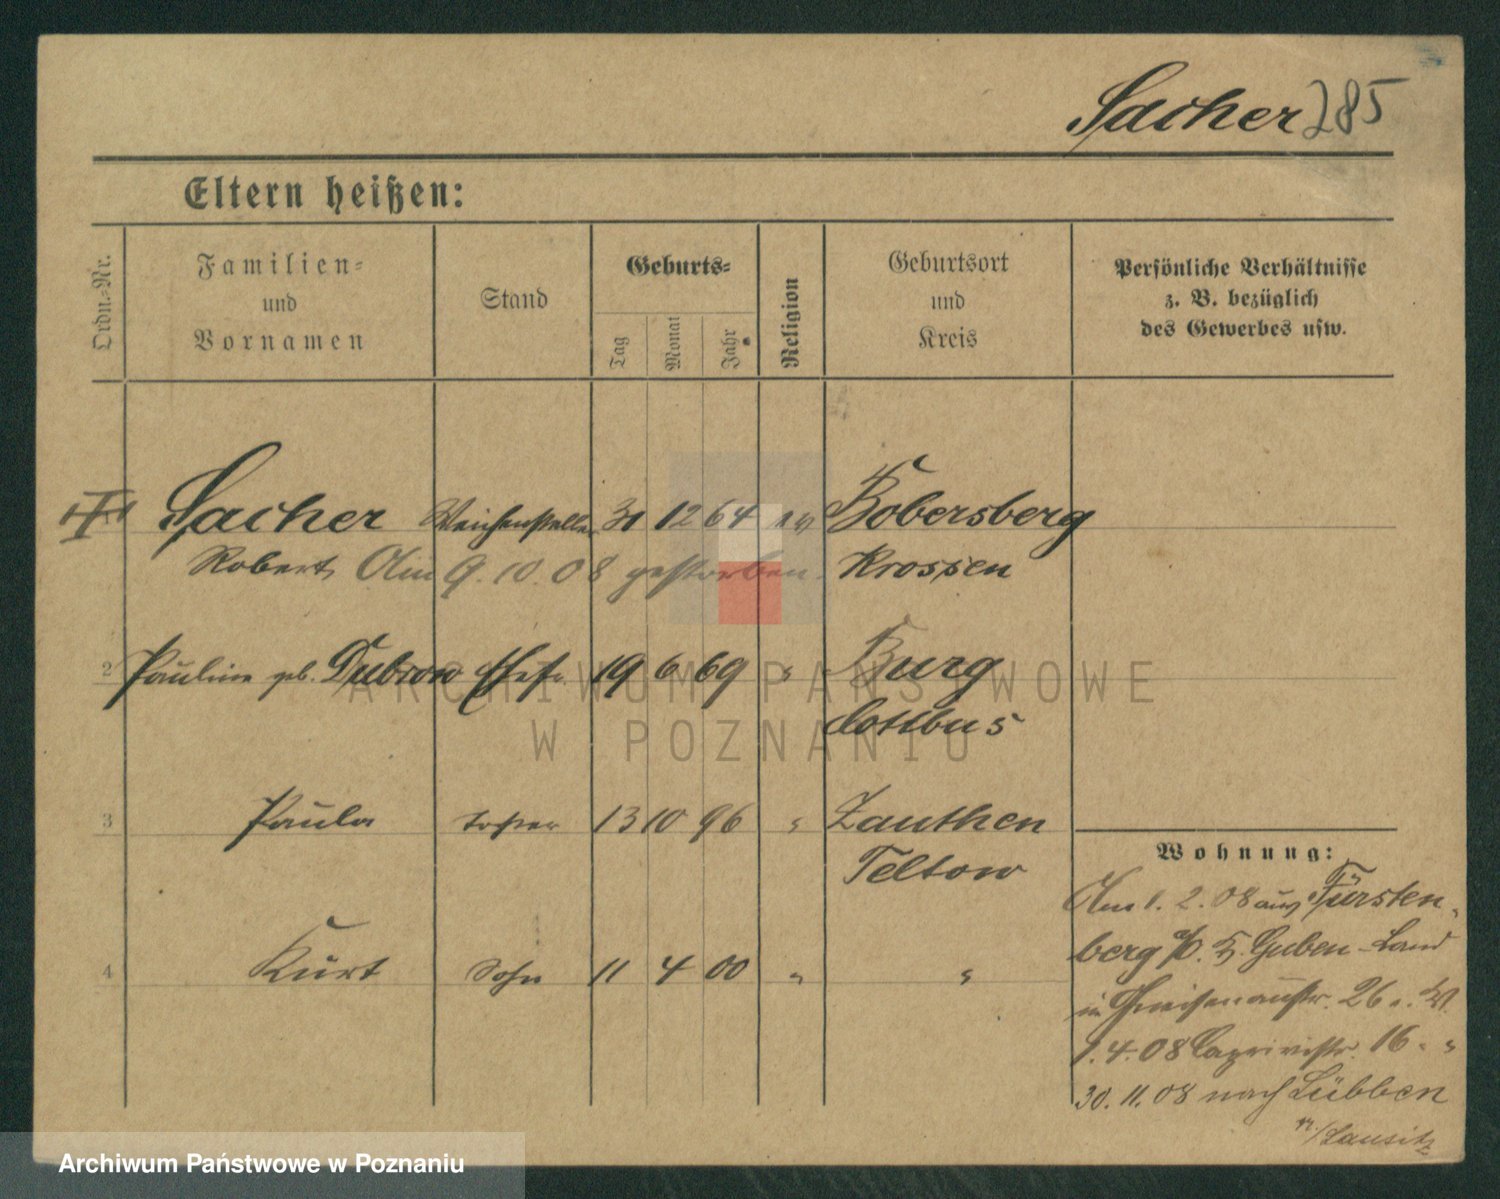 Sacher 285
Eltern heißen:
Ordn.-Nr.
Familien- und Vornamen
Stand
Geburts-
Tag
Monat
Jahr
Religion
Geburtsort und Kreis
Persönliche Verhältnisse
z. B. bezüglich
des Gewerbes usw.
Sacher Weichensteller 31 12 64 Bobersberg
Robert Am 9.10.08 gestorben. Krossen
2 Pauline geb. Dubrow Ehefr. 19 6 69 " Burg
Cottbus
3 Paula Tochter 13 10 96 " Zauthen
Teltow
4 Kurt Sohn 11 4 00 " "
Wohnung:
Am 1. 2. 08 aus Fürsten-
berg a/O. K. Guben-Land
in Gneisenaustr. 26
1.4.08 Caprivistr. 16
30.11.08 nach Lübben
/Lausitz
ARCHIWUM PAŃSTWOWE
W POZNANIU
Archiwum Państwowe w Poznaniu